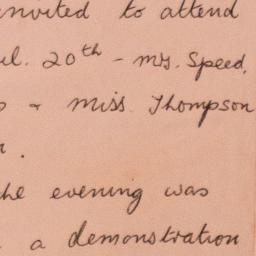 invited to attend
ul. 20th - Mrs. Speed,
& Miss Thompson
.
he evening was
a demonstration